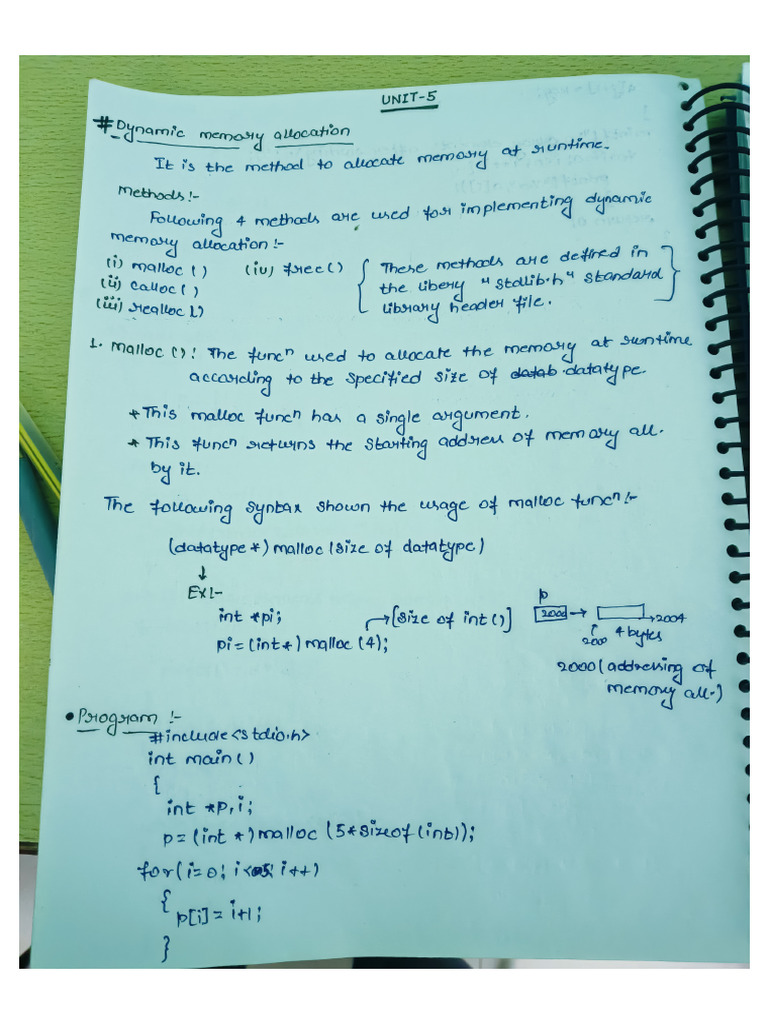 UNIT-5
# Dynamic memory allocation
It is the method to allocate memory at runtime.
Methods:-
Following 4 methods are used for implementing dynamic
memory allocation:-
(i) malloc ( )
(iv) free ( )
(ii) calloc ( )
(iii) realloc ( )
These methods are defined in
the libery "stdlib.h" standard
library header file.
1. malloc (): The funcⁿ used to allocate the memory at runtime
according to the specified size of datab datatype.
* This malloc funcⁿ has a single argument.
* This funcⁿ returns the starting address of memory all.
by it.
The following syntax shown the usage of malloc funcⁿ:-
(datatype *) malloc (size of datatype)
↓
Ex:-
int *pi;
[size of int ()]
pi = (int *) malloc (4);
p
2000 → →2004
2000 4 bytes
2000 (addressing of
memory all.)
• Program :-
#include<stdio.h>
int main ( )
{
int *p, i;
p = (int *) malloc (5*sizeof (int));
for (i=0; i<5; i++)
{
p[i] = i+1;
}